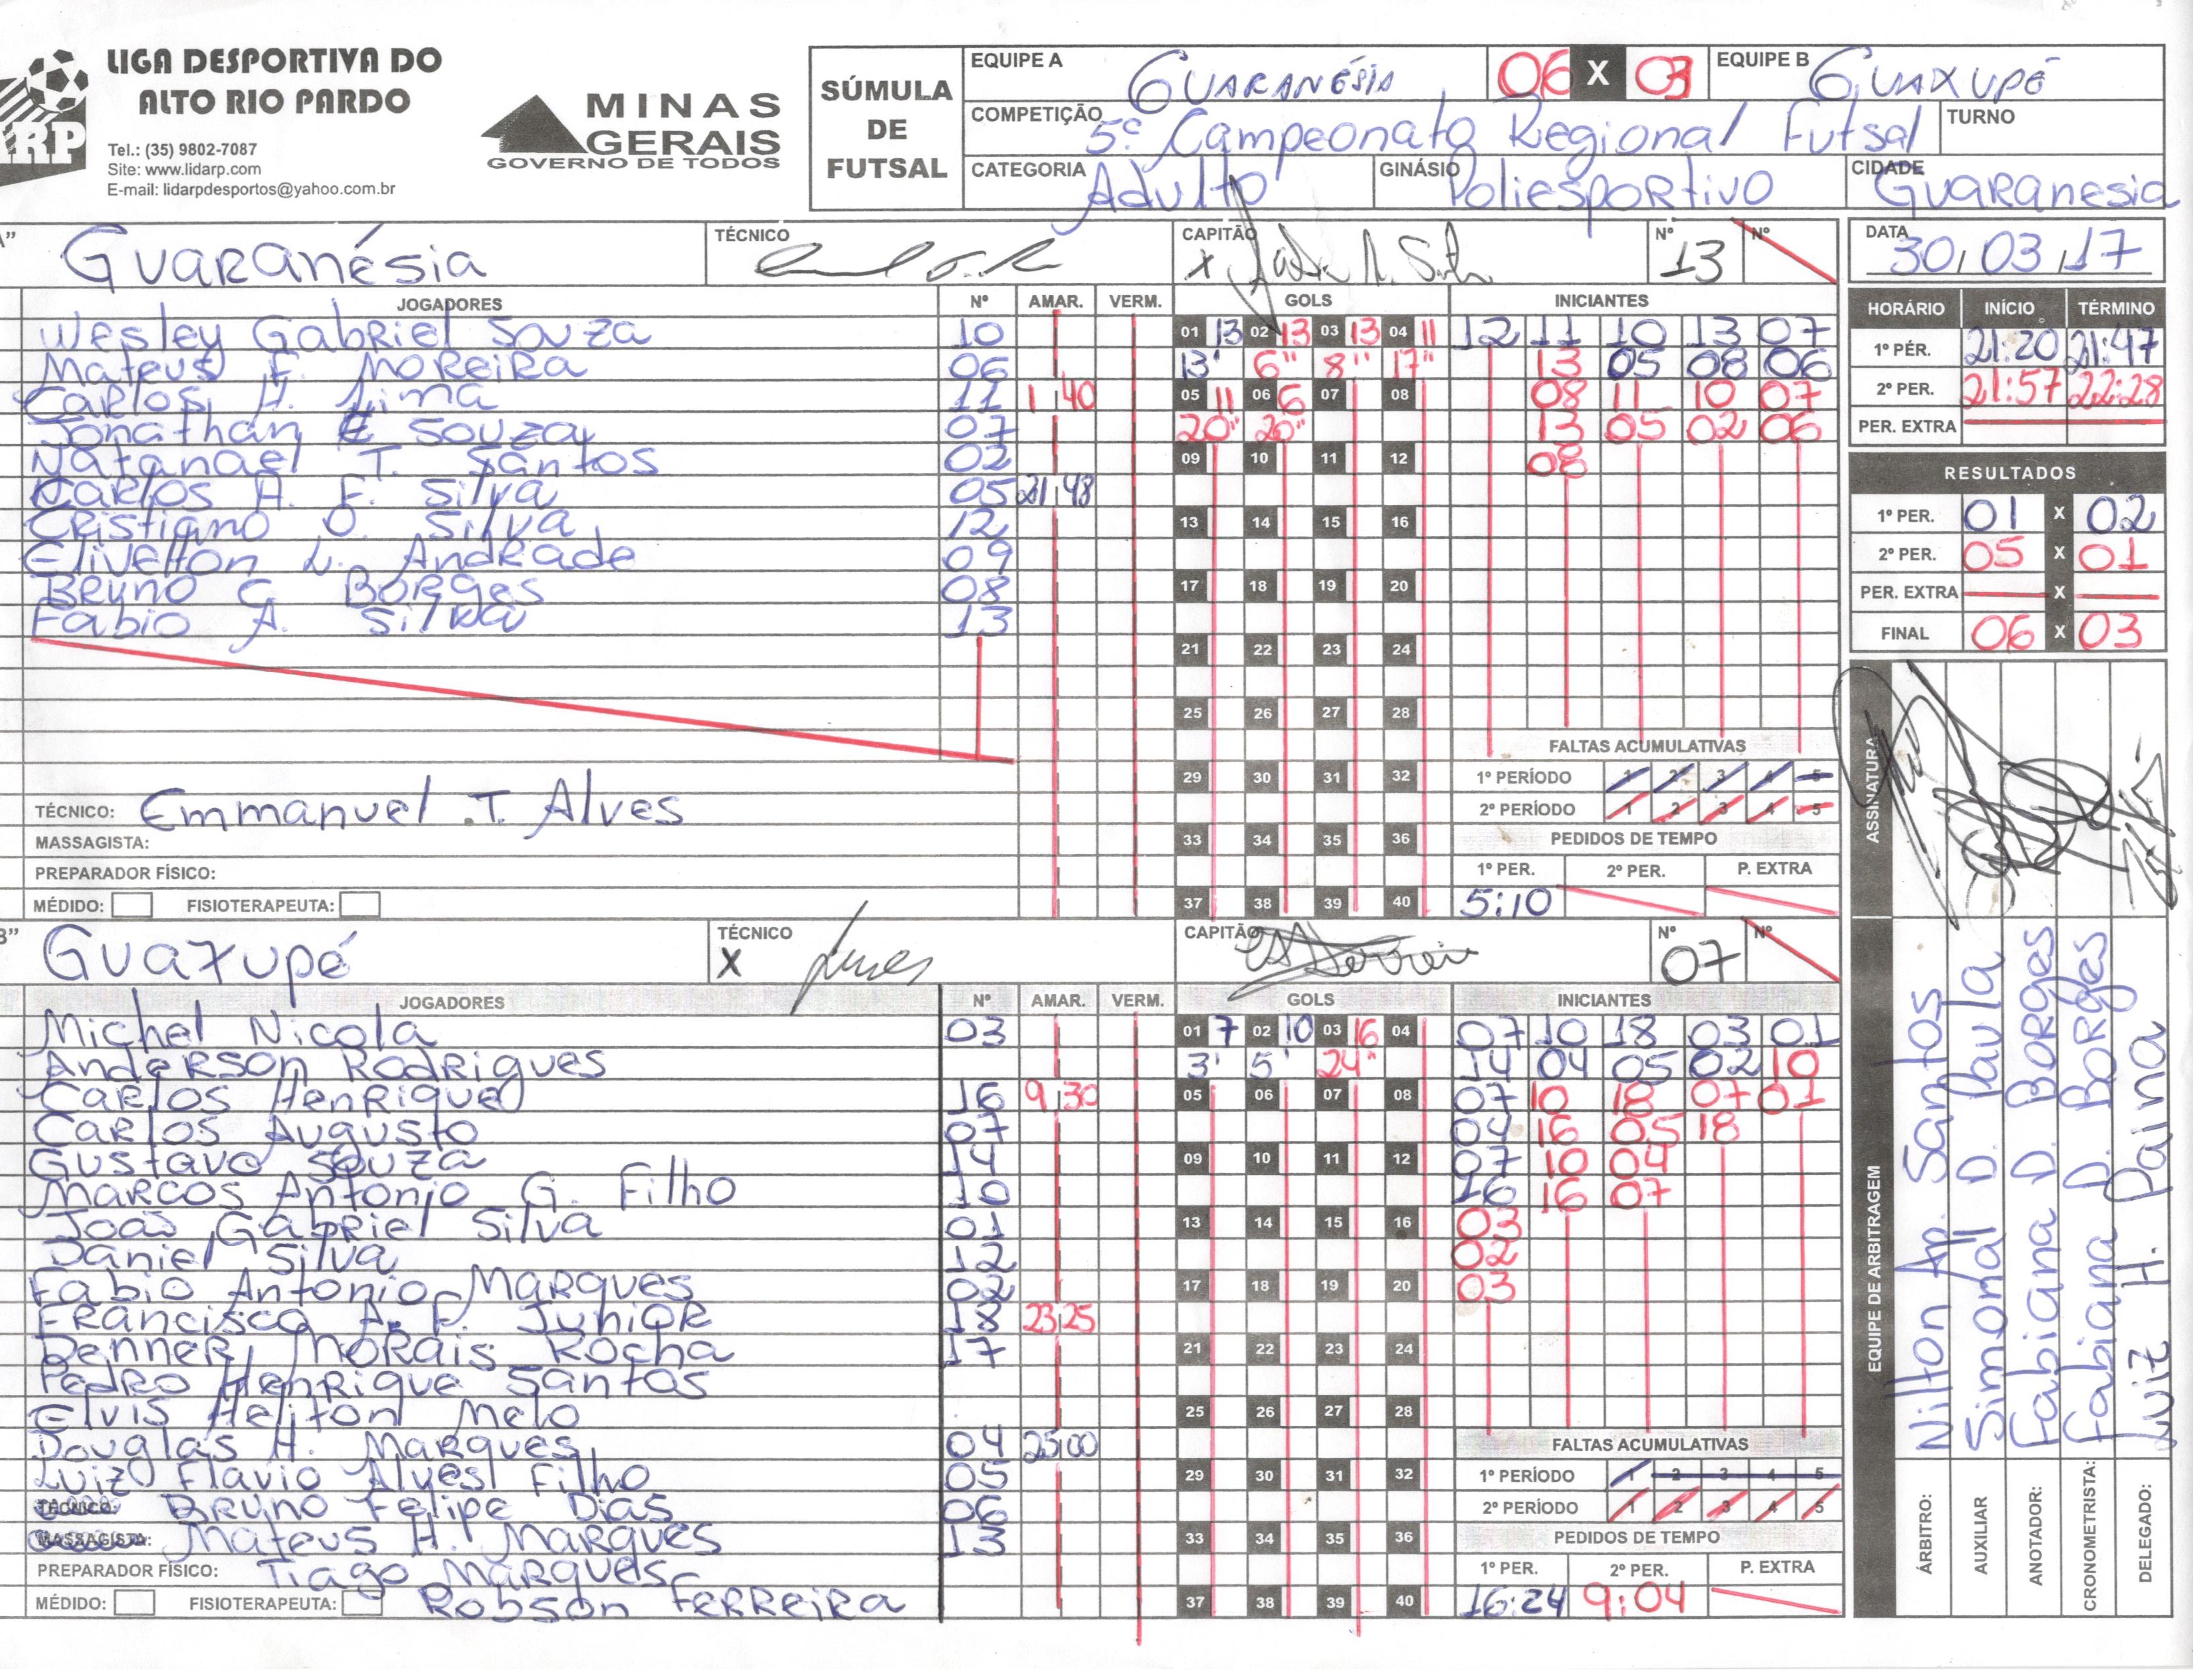 LIGA DESPORTIVA DO
ALTO RIO PARDO
Tel.: (35) 9802-7087
Site: www.lidarp.com
E-mail: lidarpdesportos@yahoo.com.br
MINAS
GERAIS
GOVERNO DE TODOS
SÚMULA
DE
FUTSAL
EQUIPE A Guaranésia 06 X 03 EQUIPE B Guaxupé
COMPETIÇÃO 5º Campeonato Regional Futsal TURNO
CATEGORIA Adulto GINÁSIO Poliesportivo CIDADE Guaranesia
Guaranésia TÉCNICO CAPITÃO X Nº 13 Nº
DATA 30/03/17
JOGADORES Nº AMAR. VERM. GOLS INICIANTES
Wesley Gabriel Souza 10 01 13 02 13 03 13 04 11 12 11 10 13 07
Mateus F. Moreira 06 13' 6" 8" 17" 13 05 08 06
Carlos H. Lima 11 1 40 05 11 06 6 07 08 08 11 10 07
Jonathan E Souza 07 20" 20" 13 05 02 06
Natanael T. Santos 02 09 10 11 12 08
Carlos A. F. Silva 05 21 48
Cristiano O. Silva 12 13 14 15 16
Elivelton L. Andrade 09
Bruno G Borges 08 17 18 19 20
Fabio A. Silva 13
21 22 23 24
25 26 27 28
29 30 31 32
33 34 35 36
37 38 39 40
HORÁRIO INÍCIO TÉRMINO
1º PÉR. 21:20 21:47
2º PER. 21:57 22:28
PER. EXTRA
RESULTADOS
1º PER. 01 X 02
2º PER. 05 X 01
PER. EXTRA X
FINAL 06 X 03
FALTAS ACUMULATIVAS
1º PERÍODO 1 2 3 4 5
2º PERÍODO 1 2 3 4 5
PEDIDOS DE TEMPO
1º PER. 2º PER. P. EXTRA
5:10
TÉCNICO: Emmanuel T. Alves
MASSAGISTA:
PREPARADOR FÍSICO:
MÉDIDO: FISIOTERAPEUTA:
Guaxupé TÉCNICO X CAPITÃO Nº 07 Nº
JOGADORES Nº AMAR. VERM. GOLS INICIANTES
Michel Nicola 03 01 7 02 10 03 16 04 07 10 18 03 01
Anderson Rodrigues 3' 5' 24" 14 04 05 02 10
Carlos Henrique 16 9 30 05 06 07 08 07 10 18 07 01
Carlos Augusto 07 04 16 05 18
Gustavo Souza 14 09 10 11 12 07 10 04
Marcos Antonio G. Filho 10 16 16 07
João Gabriel Silva 01 13 14 15 16 03
Daniel Silva 12 02
Fabio Antonio Marques 02 17 18 19 20 03
Francisco A. F. Junior 18 23 25
Denner Morais Rocha 17 21 22 23 24
Pedro Henrique Santos
Elvis Heliton Melo 25 26 27 28
Douglas H. Marques 04 25 00
Luiz Flavio Alves Filho 05 29 30 31 32
TÉCNICO: Bruno Felipe Dias 06
MASSAGISTA: Mateus H. Marques 13 33 34 35 36
PREPARADOR FÍSICO: Tiago Marques
MÉDIDO: FISIOTERAPEUTA: Robson Ferreira 37 38 39 40
FALTAS ACUMULATIVAS
1º PERÍODO 1 2 3 4 5
2º PERÍODO 1 2 3 4 5
PEDIDOS DE TEMPO
1º PER. 2º PER. P. EXTRA
16:24 9:04
ASSINATURA
EQUIPE DE ARBITRAGEM
ÁRBITRO: Nilton Ap. Santos
AUXILIAR Simonal D. Paula
ANOTADOR: Fabiana D. Borges
CRONOMETRISTA: Fabiana D. Borges
DELEGADO: Luiz H. Paina